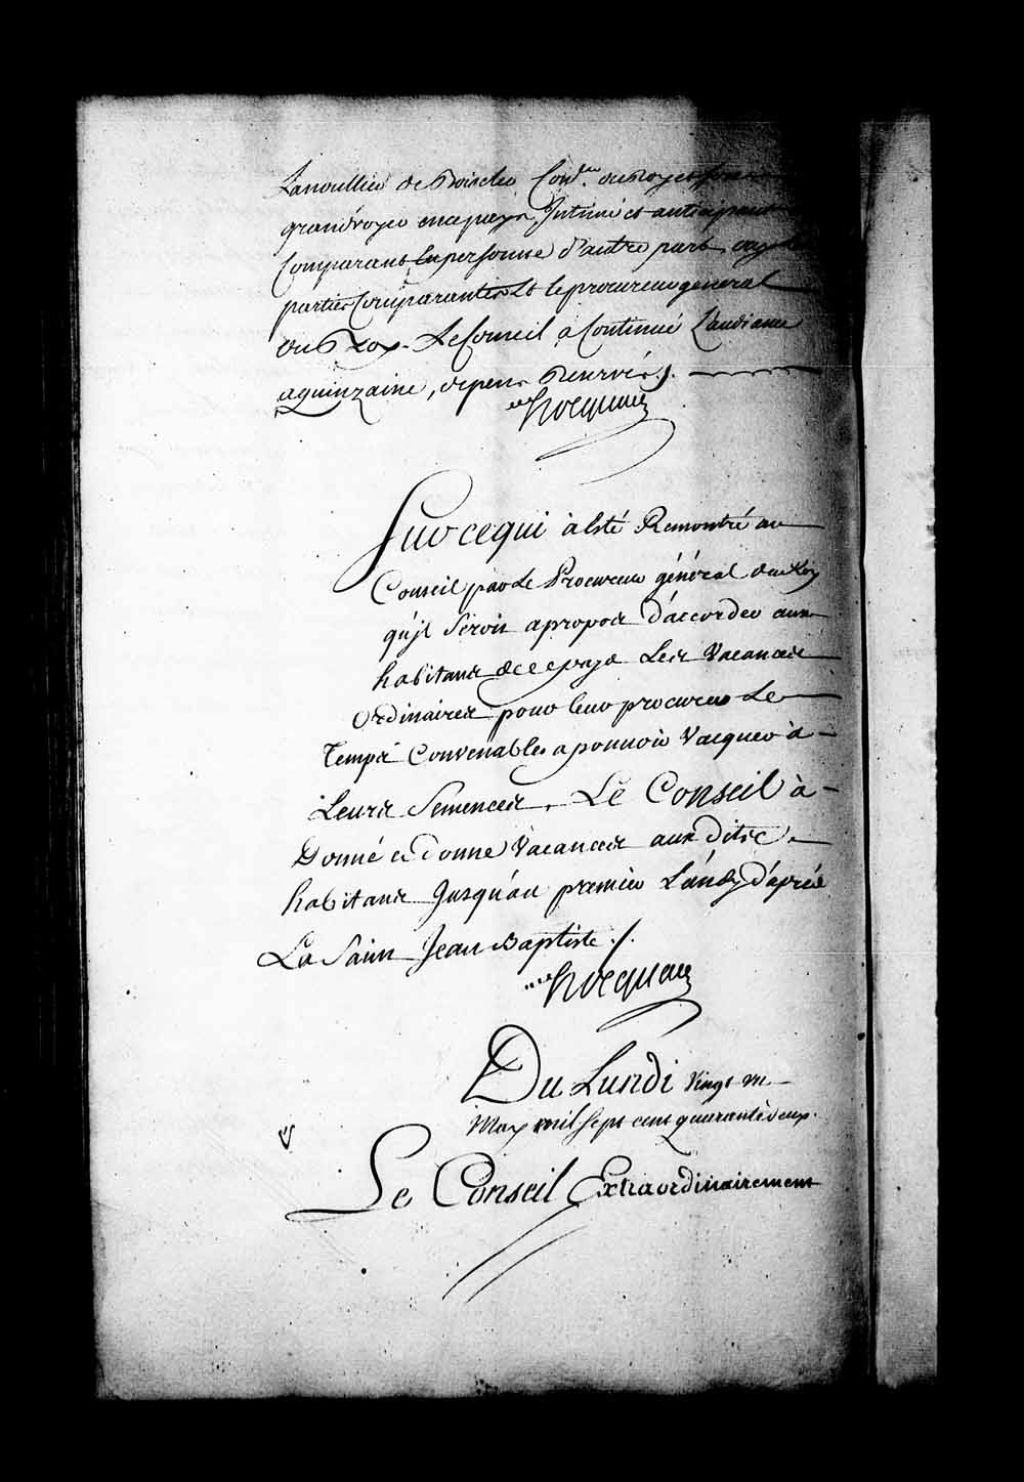 Lanoullier de Boiscler Con.er du Roy et
grand voyer en ce pays, Intimé et anticipant
Comparant En personne d'autre part, ouy les
parties Comparantes Et le procureur general
du Roy. Le Conseil a Continué L'audiance
a quinzaine, depens Reservés ./.
Hocquart
Sur ce qui à Esté Remontré au
Conseil par Le Procureur général du Roy
qu'jl Seroit apropos d'accorder aux
habitans de ce pays Les Vacances
Ordinaires pour leur procurer Le
Temps Convenables a pouvoir Vacquer à
Leurs Semences, Le Conseil à
Donné et donne Vacances aux dits
habitans Jusqu'au premier Lundy d'après
La Saint Jean Baptiste ./.
Hocquart
Du Lundi Vingt un
May mil sept cent quarante deux.
Le Conseil Extraordinairement